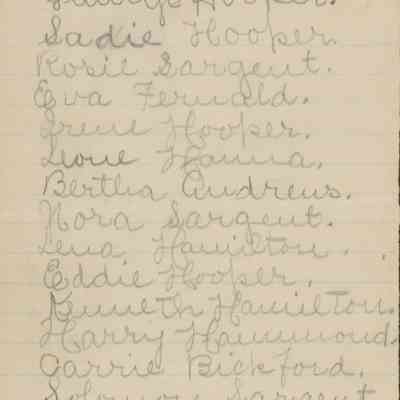 George Hooper.
Sadie Hooper.
Rosie Sargent.
Eva Fernald.
Irene Hooper.
Leone Hanna.
Bertha Andrews.
Nora Sargent.
Lena Hamilton.
Eddie Hooper.
Kenneth Hamilton.
Harry Hammond.
Carrie Bickford.
Solomon Sargent